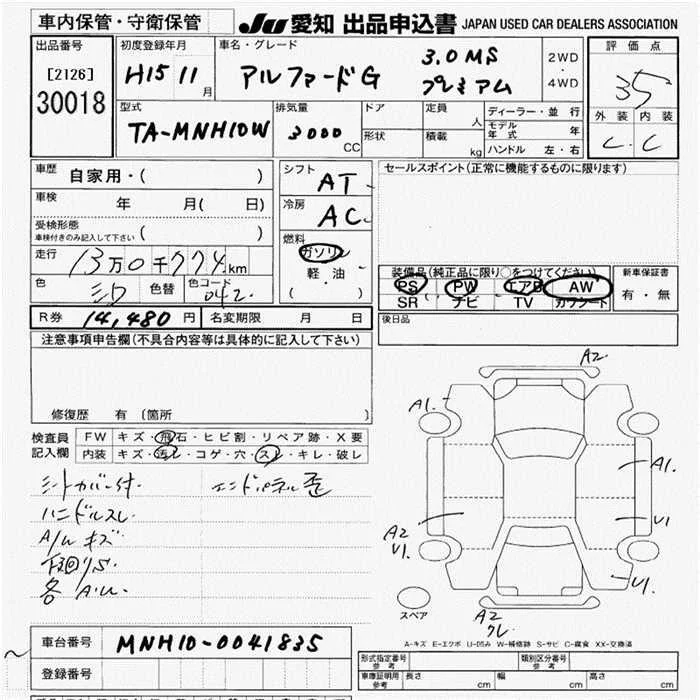 車内保管・守衛保管
JU 愛知 出品申込書 JAPAN USED CAR DEALERS ASSOCIATION
出品番号
[2126]
30018
初度登録年月
H15 11 月
車名・グレード
アルファードG
3.0MS
プレミアム
2WD
・
4WD
評価点
3.5
外装 内装
C C
型式
TA-MNH10W
排気量
3000 CC
ドア
形状
定員
人
積載
kg
ディーラー・並行
モデル年式 年
ハンドル 左・右
車歴
自家用・( )
車検
年 月( 日)
受検形態
車検付きのみ記入して下さい ( )
走行
13万0千774km
色
シロ
色替
色コード
042
シフト
AT
冷房
AC
燃料
ガソリン
軽・油
( )
セールスポイント(正常に機能するものに限ります)
装備品(純正品に限り○をつけてください)
PS PW エアB AW
SR ナビ TV カワシート
新車保証書
有・無
R券 14,480 円 名変期限 月 日
後日品
注意事項申告欄(不具合内容等は具体的に記入して下さい)
修復歴 有 〔箇所 〕
検査員
記入欄
FW キズ・飛石・ヒビ割・リペア跡・X要
内装 キズ・汚レ・コゲ・穴・スレ・キレ・破レ
シートカバー付
エンドパネル歪
ハンドルスレ
A/Wキズ
下回りS
各A.U.
A2
A1.
A1.
U1
A2
U1.
U1.
スペア
A2
クレ
A-キズ E-エクボ U-凹み W-補修跡 S-サビ C-腐食 XX-交換済
車台番号
MNH10-0041835
登録番号
形式指定番号
参考
類別区分番号
参考
車庫証明用
参考
長さ cm 幅 cm 高さ cm